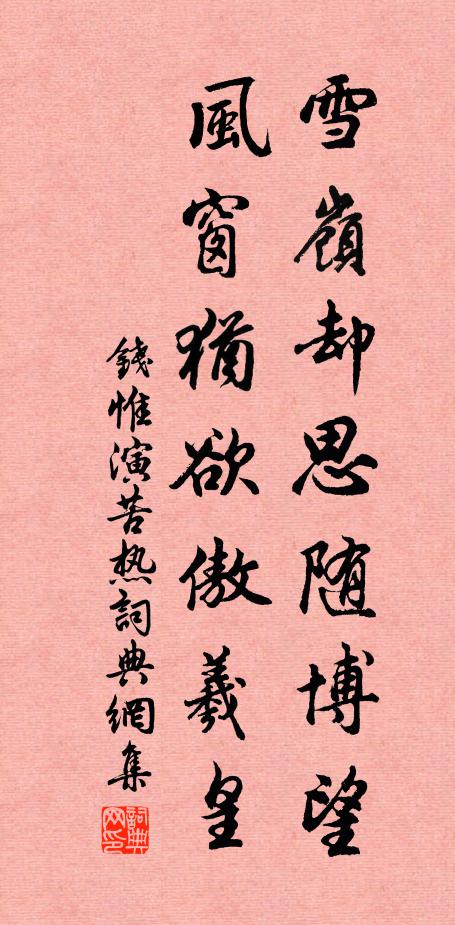 雪嶺却思随博望
風窗猶欲傲羲皇
錢惟演苦热詞典網集
詞典网印